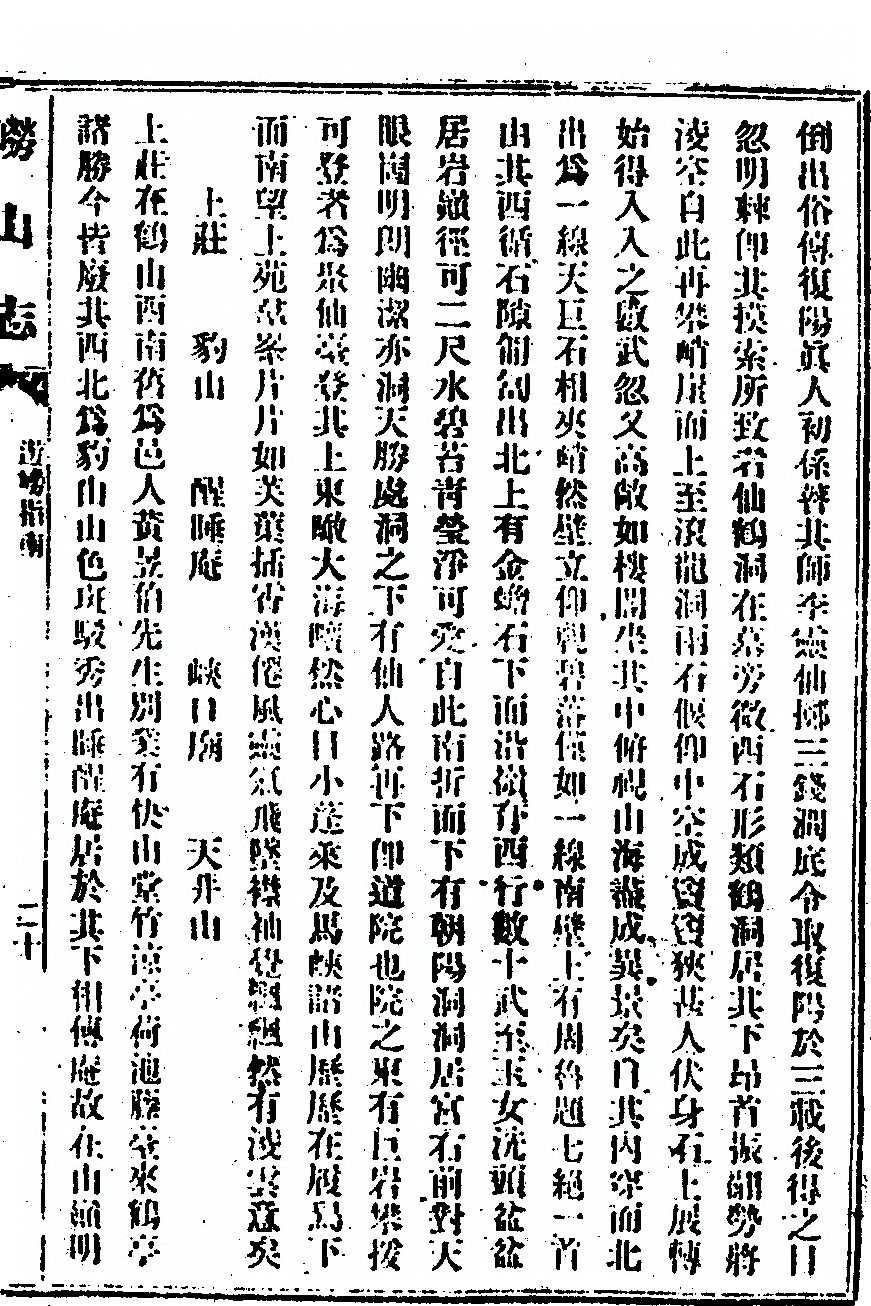 倒出俗傳復陽眞人初係瞽其師李靈仙擲三錢澗底令取復陽於三載後得之目
忽明棘仰其摸索所致若仙鶴洞在墓旁微西石形類鶴洞居其下昂首振翮勢將
凌空自此再攀峭崖而上至滾龍洞南石偃仰中空成竇竇狹甚人伏身石上展轉
始得入入之數武忽又高敞如樓閣坐其中俯視山海盡成異景矣自其內穿而北
出爲一線天巨石相夾峭然壁立仰視碧落僅如一線南壁上有周魯題七絕一首
由其西循石隙匍匐出北上有金蟾石下面沿嶺在西行數十武至玉女洗頭盆盆
居岩巔徑可二尺水碧苔青瑩淨可愛自此南折而下有朝陽洞洞居宮右前對天
眼崮明朗幽潔亦洞天勝處洞之下有仙人路再下卽道院也院之東有巨岩攀援
可登者爲聚仙臺登其上東瞰大海曠然心目小蓬萊及馬峽諸山歷歷在履舄下
而南望上苑羣峯片片如芙蕖插霄漢倦風靈氣飛墜襟袖覺飄飄然有凌雲意矣
上莊　豹山　醒睡庵　峽口廟　天井山
上莊在鶴山西南舊爲邑人黃昱伯先生別業有快山堂竹涼亭荷池勝臺來鶴亭
諸勝今皆廢其西北爲豹山山色斑駁秀出睡醒庵居於其下相傳庵故在山巔明
嶗山志
遊嶗指南
二十